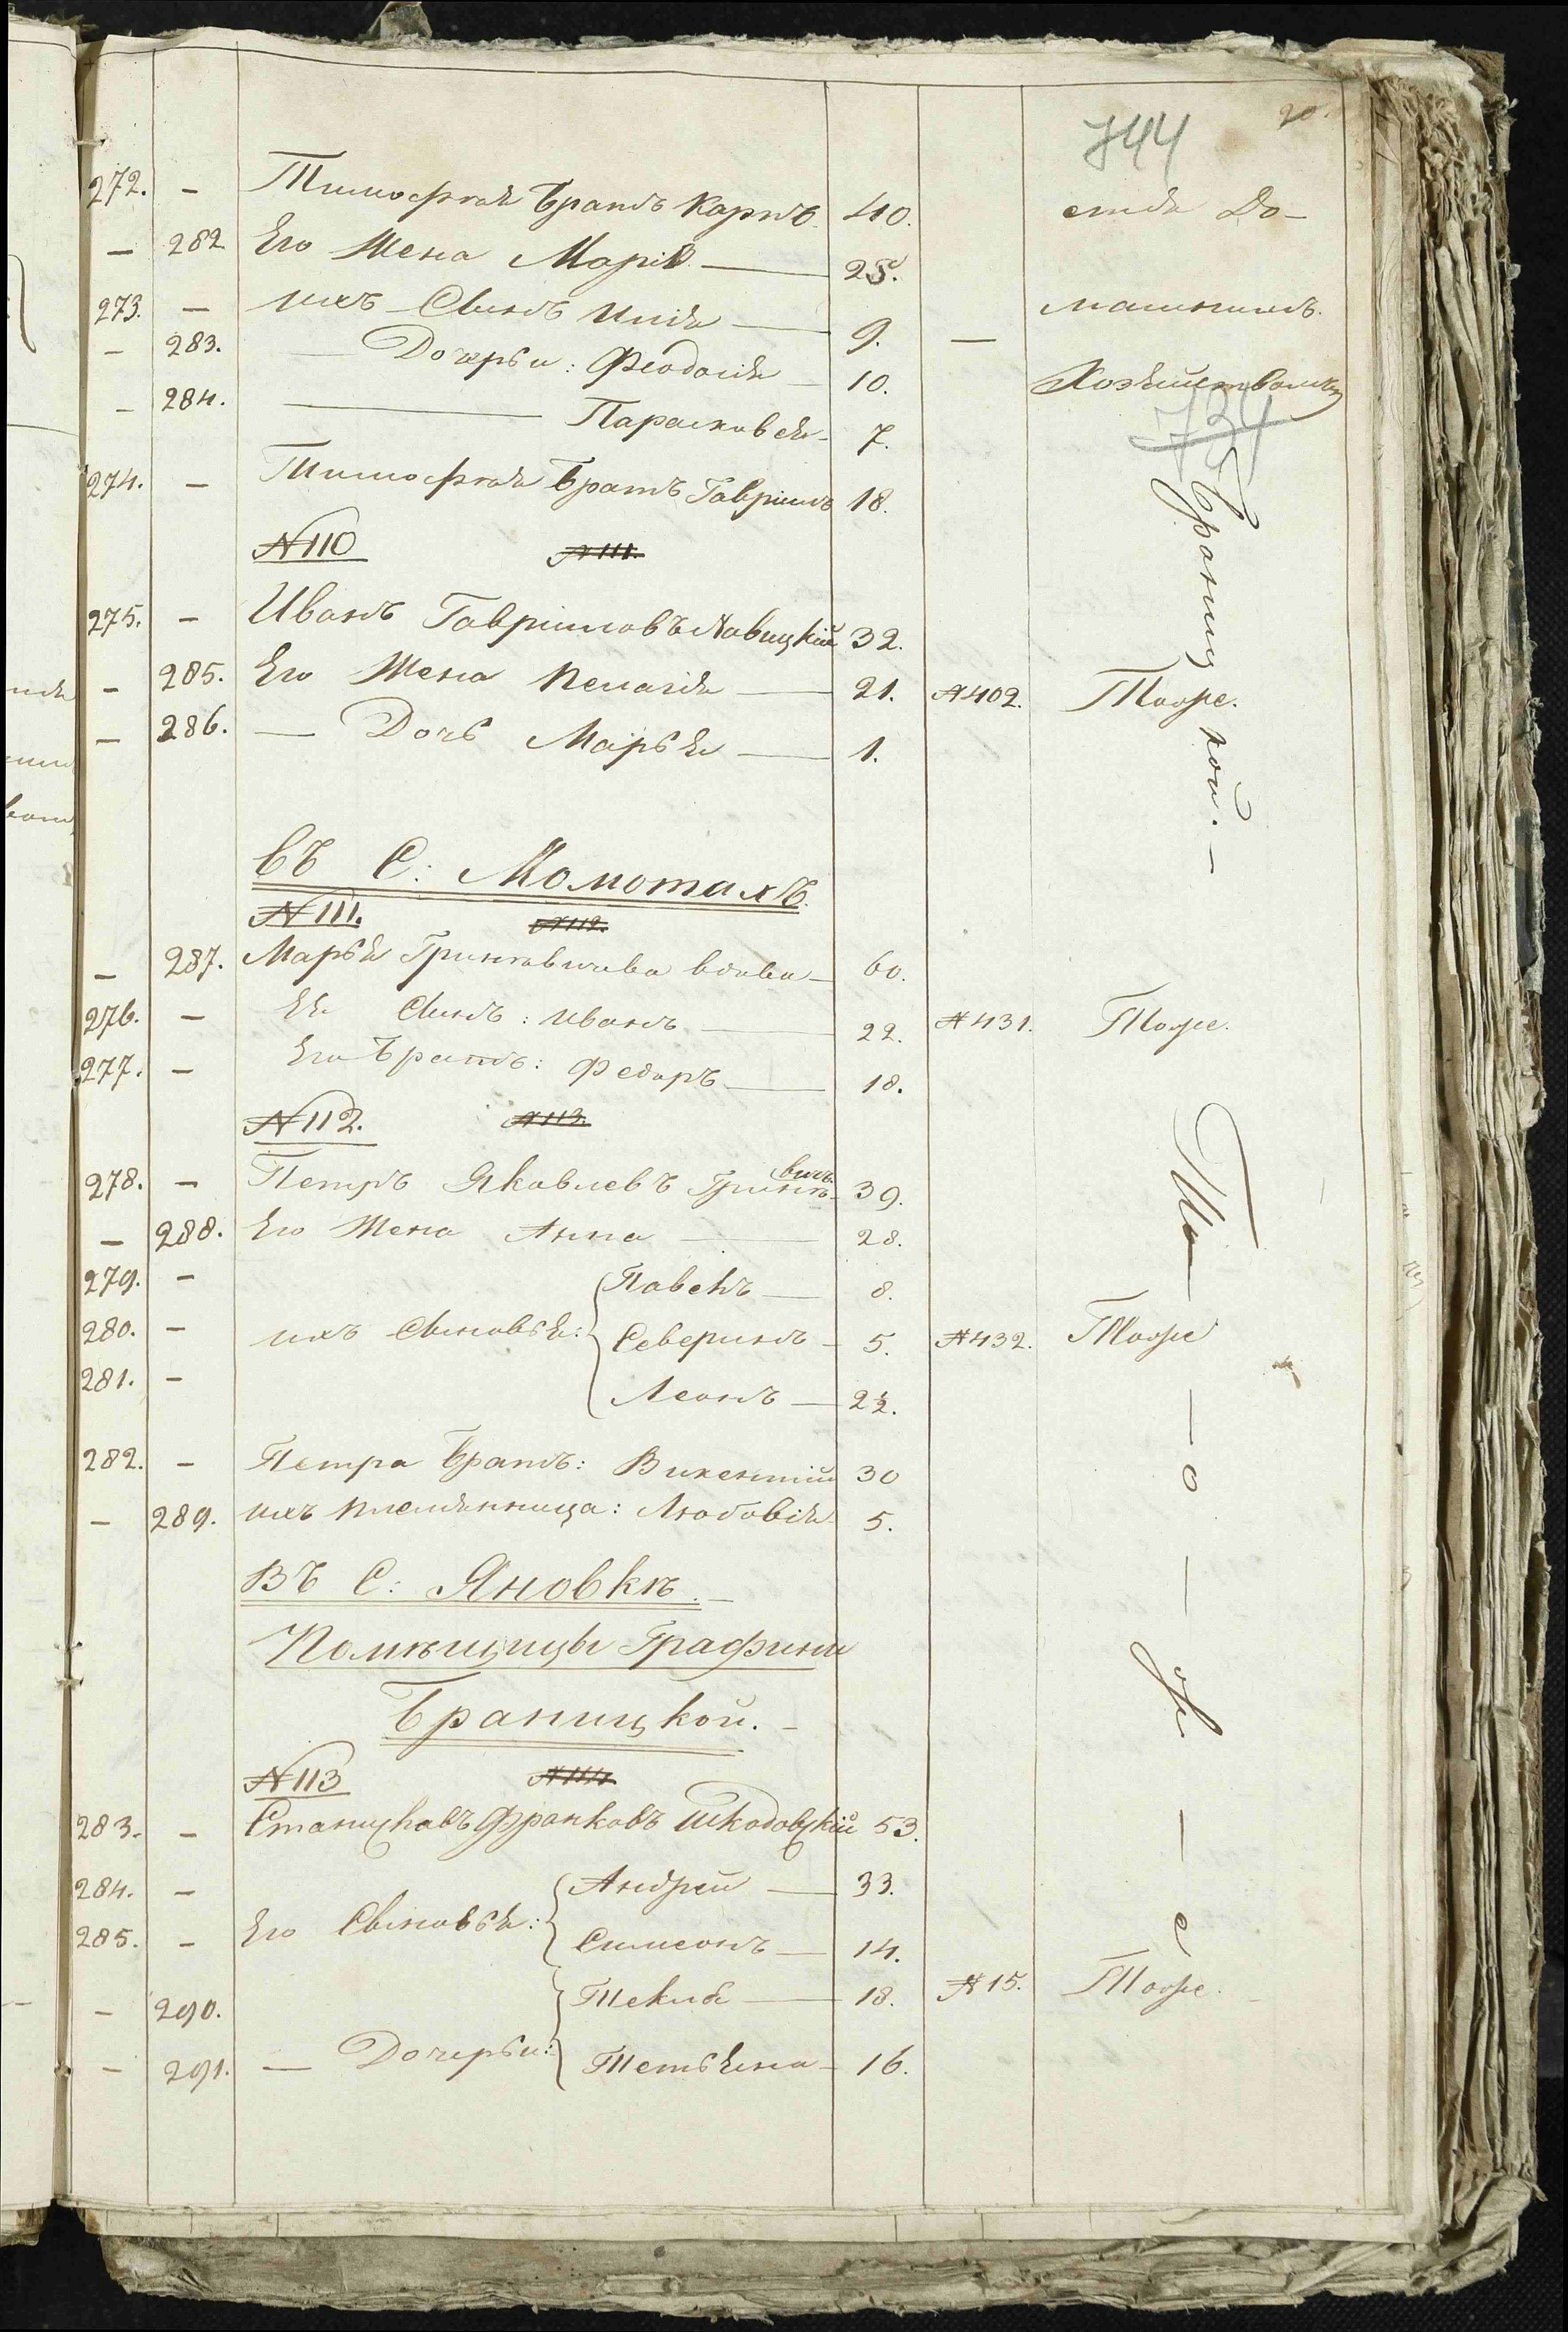 20.
744
272. — Тимофея Братъ Карпъ. 40. ствя До-
— 282 Его Жена Марія — 25.
273. — Ихъ Сынъ Илія — 9. — машнимъ.
— 283. — Дочерьи: Феодосія — 10. Хозяйством
— 284. — Парасковея — 7.
734
274. — Тимофея Братъ Гавріилъ 18.
Браницкой. —
N 110 N 111.
275. — Иванъ Гавріиловъ Навицкій 32.
— 285. Его Жена Пелагія — 21. N 402. Тоже.
— 286. — Дочь Марья — 1.
въ С: Момотахъ.
N 111. N 112.
— 287. Марья Гриневичева вдова — 60.
276. — Ея Сынъ: Иванъ — 22. N 431. Тоже.
277. — Его Братъ: Федоръ — 18.
N 112. N 113.
278. — Петръ Яковлевъ Гриневичъ 39.
— 288. Его Жена Анна — 28.
279. — Павелъ — 8.
280. — Ихъ Сыновья: Северинъ — 5. N 432. Тоже
281. — Леонъ — 2½.
282. — Петра Братъ: Викентій 30
— 289. Ихъ племянница: Любовія 5.
То — о — ж — е
Въ С: Яновкѣ. —
Помѣщицы Графини
Браницкой. —
N 113 N 114
283. — Станиславъ Франковъ Шкодовскій 53.
284. — Андрей — 33.
285. — Его Сыновья: Симеонъ — 14.
— 290. Текля — 18. N 15. Тоже.
— 291. — Дочерьи: Тетьяна — 16.